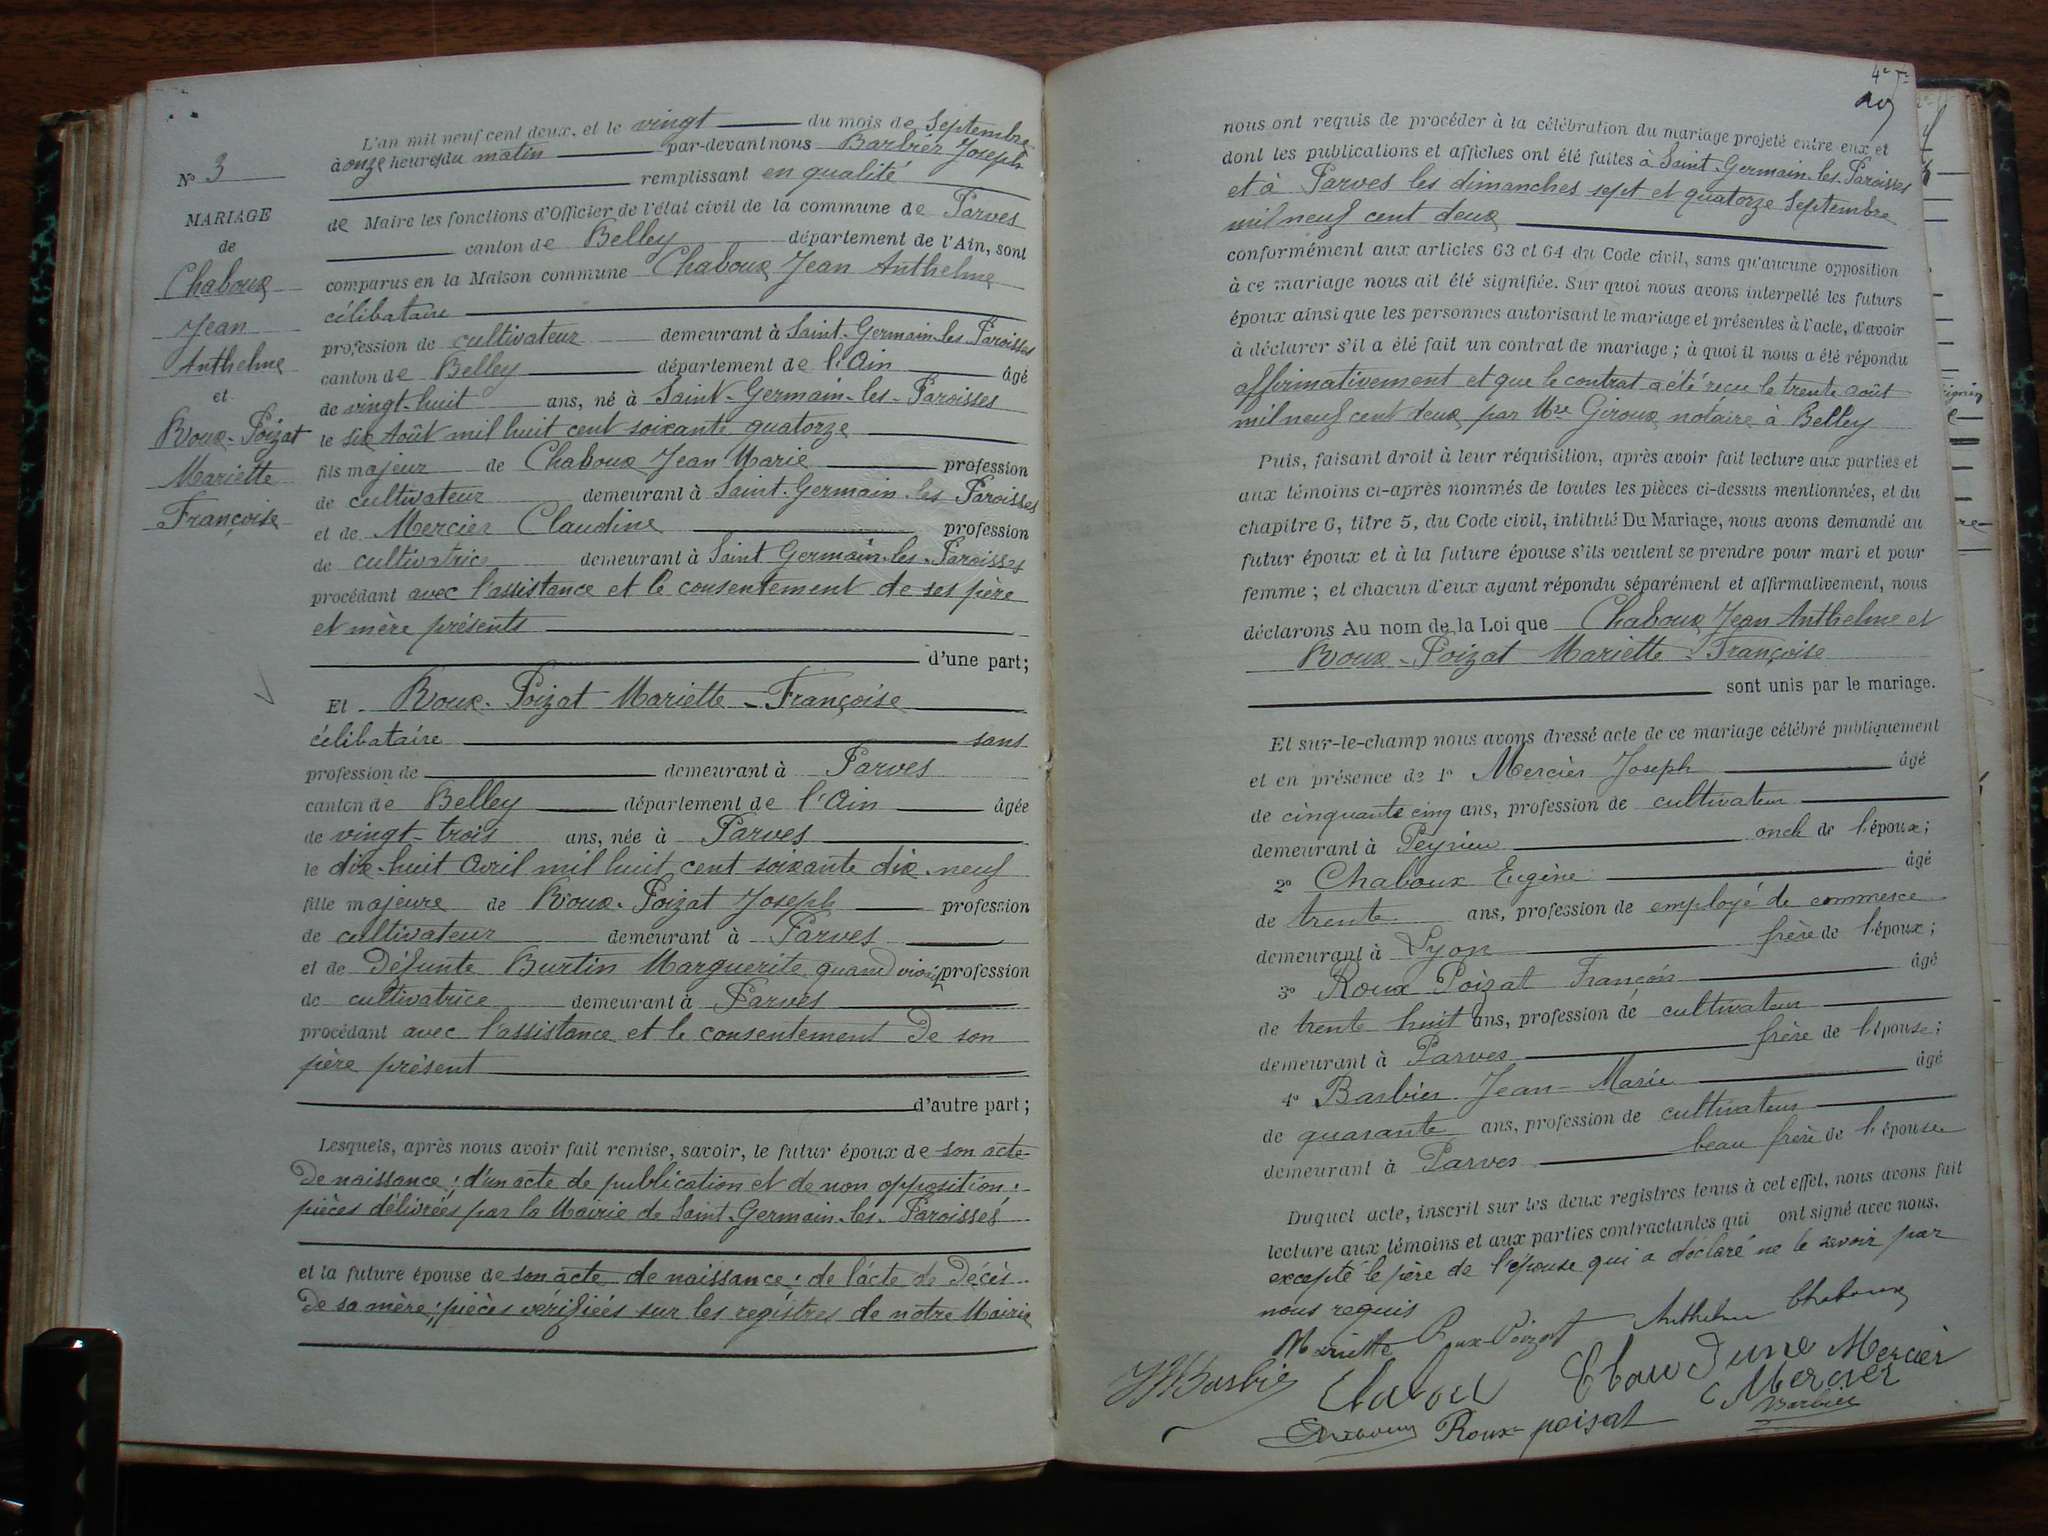 N° 3
MARIAGE
de
Chaboux
Jean
Anthelme
et
Roux-Poizat
Mariette
Françoise
L'an mil neuf cent deux, et le vingt du mois de Septembre
à onze heures du matin par-devant nous Barbier Joseph
remplissant en qualité
de Maire les fonctions d'Officier de l'état civil de la commune de Parves
canton de Belley département de l'Ain, sont
comparus en la Maison commune Chaboux Jean Anthelme
célibataire
profession de cultivateur demeurant à Saint-Germain-les-Paroisses
canton de Belley département de l'Ain âgé
de vingt-huit ans, né à Saint-Germain-les-Paroisses
le six Août mil huit cent soixante quatorze
fils majeur de Chaboux Jean Marie profession
de cultivateur demeurant à Saint-Germain-les Paroisses
et de Mercier Claudine profession
de cultivatrice demeurant à Saint Germain-les-Paroisses
procédant avec l'assistance et le consentement de ses père
et mère présents
d'une part;
Et Roux-Poizat Mariette-Françoise
célibataire sans
profession de demeurant à Parves
canton de Belley département de l'Ain âgée
de vingt-trois ans, née à Parves
le dix-huit Avril mil huit cent soixante dix-neuf
fille majeure de Roux-Poizat Joseph profession
de cultivateur demeurant à Parves
et de Défunte Burtin Marguerite quand vivait profession
de cultivatrice demeurant à Parves
procédant avec l'assistance et le consentement de son
père présent
d'autre part;
Lesquels, après nous avoir fait remise, savoir, le futur époux de son acte
de naissance; d'un acte de publication et de non opposition:
pièces délivrées par la Mairie de Saint-Germain-les-Paroisses
et la future épouse de son acte de naissance; de l'acte de décès
de sa mère; pièces vérifiées sur les registres de notre Mairie
4e
nous ont requis de procéder à la célébration du mariage projeté entre eux et
dont les publications et affiches ont été faites à Saint-Germain-les-Paroisses
et à Parves les dimanches sept et quatorze Septembre
mil neuf cent deux
conformément aux articles 63 et 64 du Code civil, sans qu'aucune opposition
à ce mariage nous ait été signifiée. Sur quoi nous avons interpellé les futurs
époux ainsi que les personnes autorisant le mariage et présentes à l'acte, d'avoir
à déclarer s'il a été fait un contrat de mariage; à quoi il nous a été répondu
affirmativement et que le contrat a été reçu le trente août
mil neuf cent deux par Mre Giroux notaire à Belley
Puis, faisant droit à leur réquisition, après avoir fait lecture aux parties et
aux témoins ci-après nommés de toutes les pièces ci-dessus mentionnées, et du
chapitre 6, titre 5, du Code civil, intitulé Du Mariage, nous avons demandé au
futur époux et à la future épouse s'ils veulent se prendre pour mari et pour
femme; et chacun d'eux ayant répondu séparément et affirmativement, nous
déclarons Au nom de la Loi que Chaboux Jean Anthelme et
Roux-Poizat Mariette-Françoise
sont unis par le mariage.
Et sur-le-champ nous avons dressé acte de ce mariage célébré publiquement
et en présence de 1° Mercier Joseph âgé
de cinquante cinq ans, profession de cultivateur
demeurant à Peyrieu oncle de l'époux;
2° Chaboux Eugène âgé
de trente ans, profession de employé de commerce
demeurant à Lyon frère de l'époux;
3° Roux Poizat François âgé
de trente huit ans, profession de cultivateur
demeurant à Parves frère de l'épouse;
4° Barbier Jean-Marie âgé
de quarante ans, profession de cultivateur
demeurant à Parves beau frère de l'épouse
Duquel acte, inscrit sur les deux registres tenus à cet effet, nous avons fait
lecture aux témoins et aux parties contractantes qui ont signé avec nous.
excepté le père de l'épouse qui a déclaré ne le savoir par
nous requis
Mariette Roux-Poizat Anthelme Chaboux
JMBarbier Chabou Claudine Mercier
Mercier
Chaboux Roux-poisat Barbier